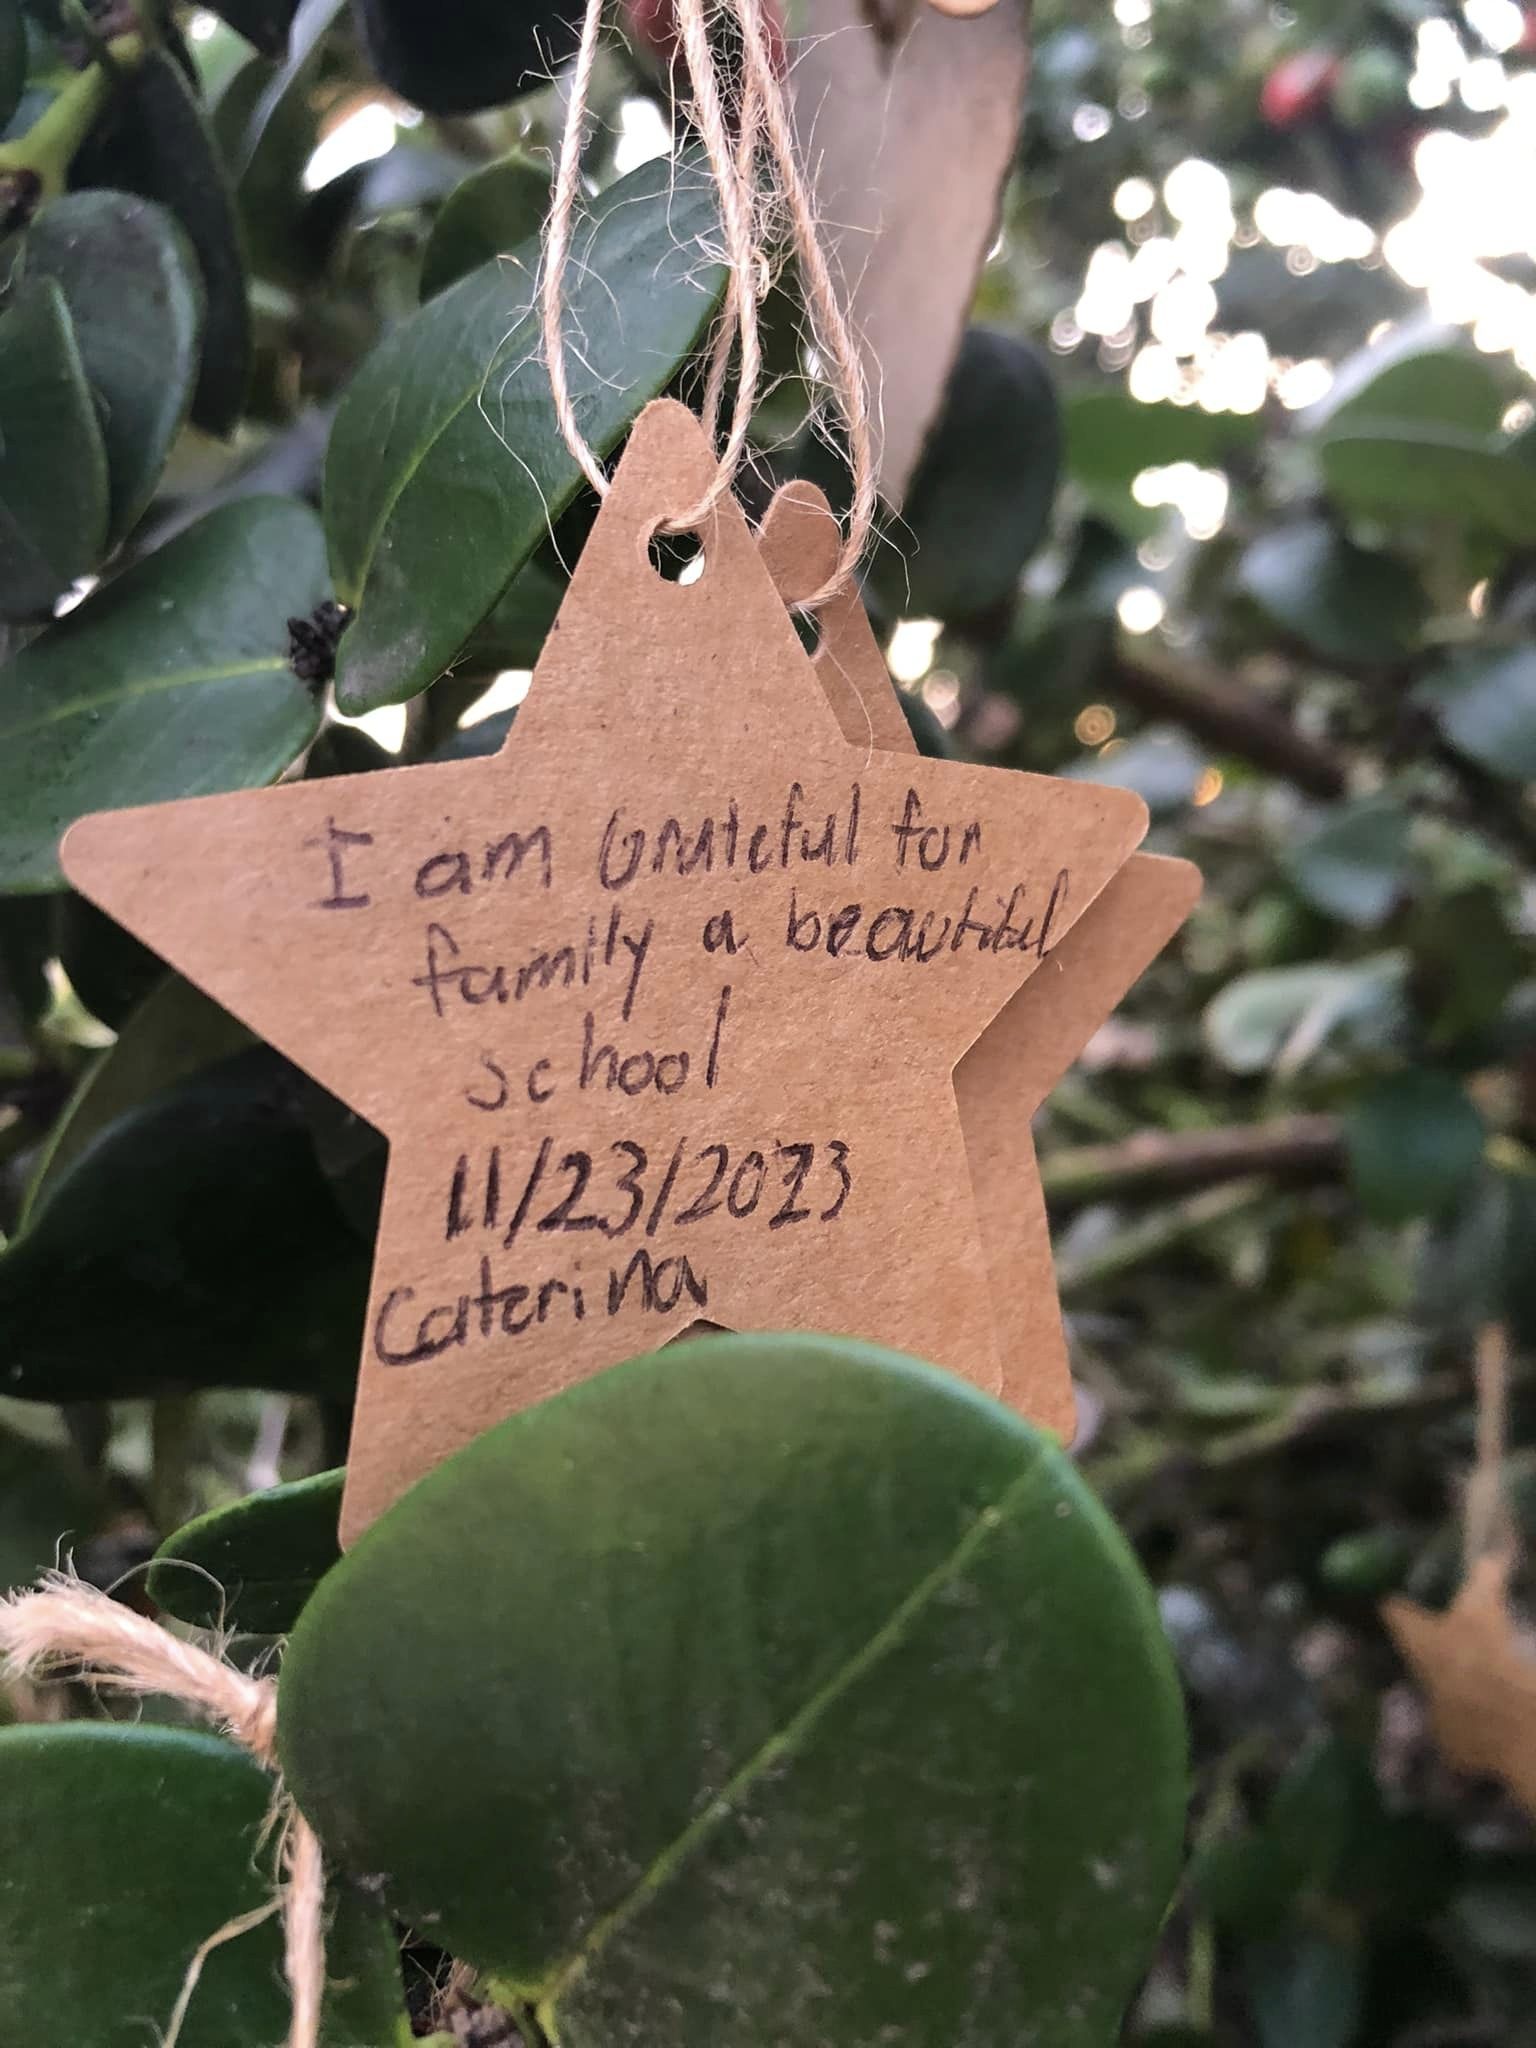 I am Grateful for
family a beautiful
school
11/23/2023
Caterina